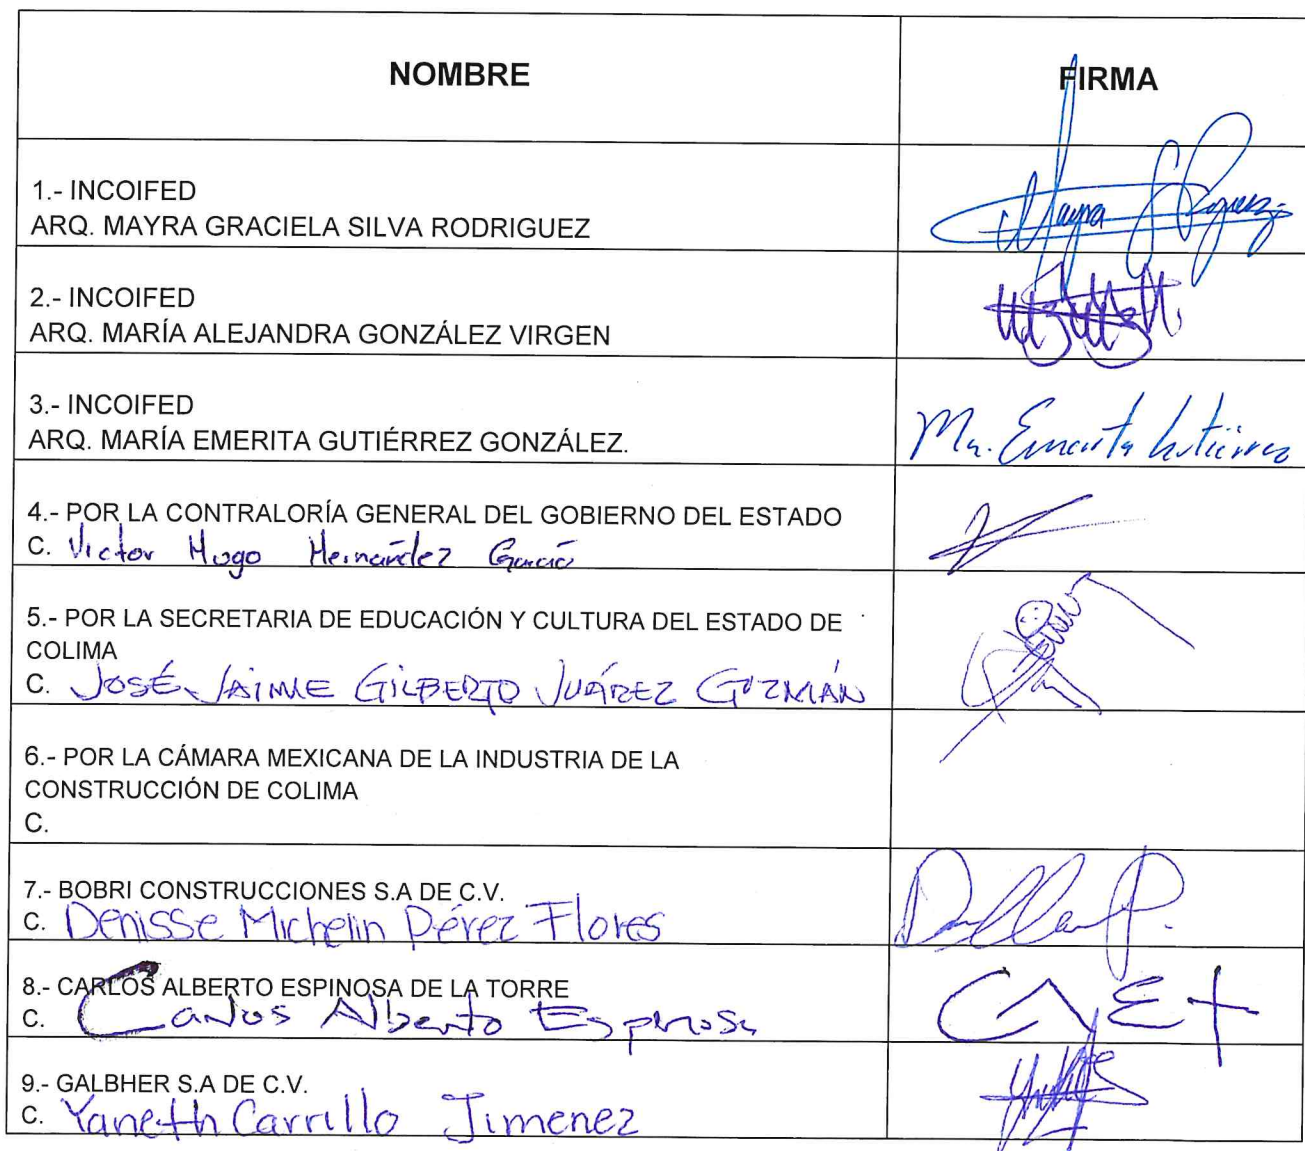 NOMBRE
FIRMA
1.- INCOIFED
ARQ. MAYRA GRACIELA SILVA RODRIGUEZ
Mayra
2.- INCOIFED
ARQ. MARÍA ALEJANDRA GONZÁLEZ VIRGEN
3.- INCOIFED
ARQ. MARÍA EMERITA GUTIÉRREZ GONZÁLEZ.
Ma. Emerita Gutiérrez
4.- POR LA CONTRALORÍA GENERAL DEL GOBIERNO DEL ESTADO
C. Victor Hugo Hernández García
5.- POR LA SECRETARIA DE EDUCACIÓN Y CULTURA DEL ESTADO DE
COLIMA
C. JOSÉ JAIME GILBERTO JUÁREZ GUZMÁN
6.- POR LA CÁMARA MEXICANA DE LA INDUSTRIA DE LA
CONSTRUCCIÓN DE COLIMA
C.
7.- BOBRI CONSTRUCCIONES S.A DE C.V.
C. Denisse Michelin Pérez Flores
8.- CARLOS ALBERTO ESPINOSA DE LA TORRE
C. Carlos Alberto Espinosa
CAET
9.- GALBHER S.A DE C.V.
C. Yaneth Carrillo Jimenez